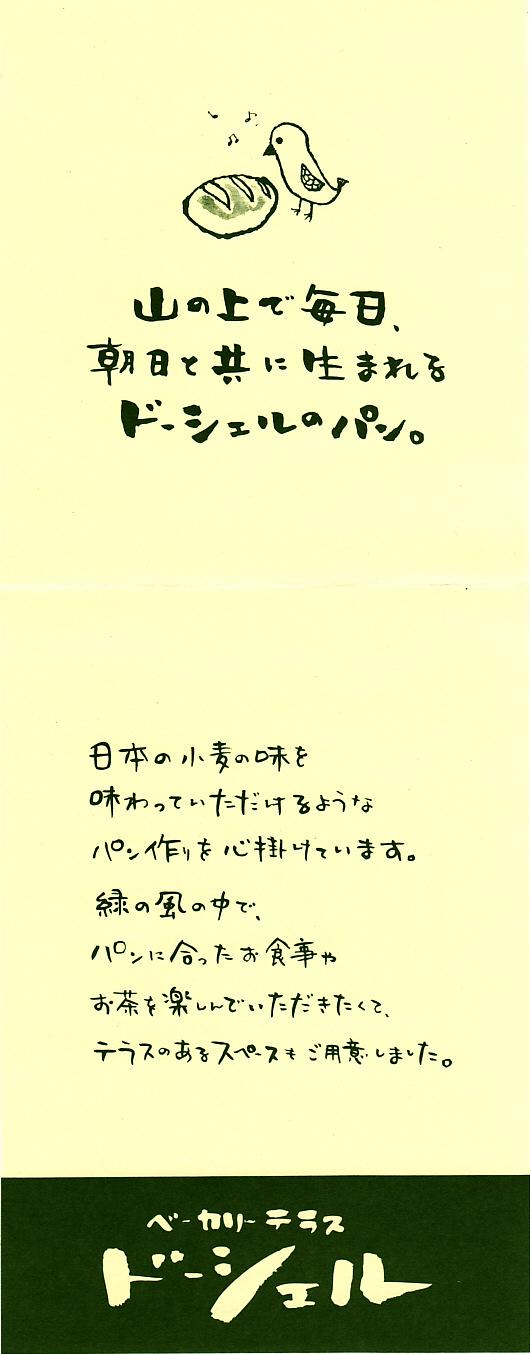 山の上で毎日、
朝日と共に生まれる
ドーシェルのパン。
日本の小麦の味を
味わっていただけるような
パン作りを心掛けています。
緑の風の中で、
パンに合ったお食事や
お茶を楽しんでいただきたくて、
テラスのあるスペースもご用意しました。
ベーカリーテラス
ドーシェル